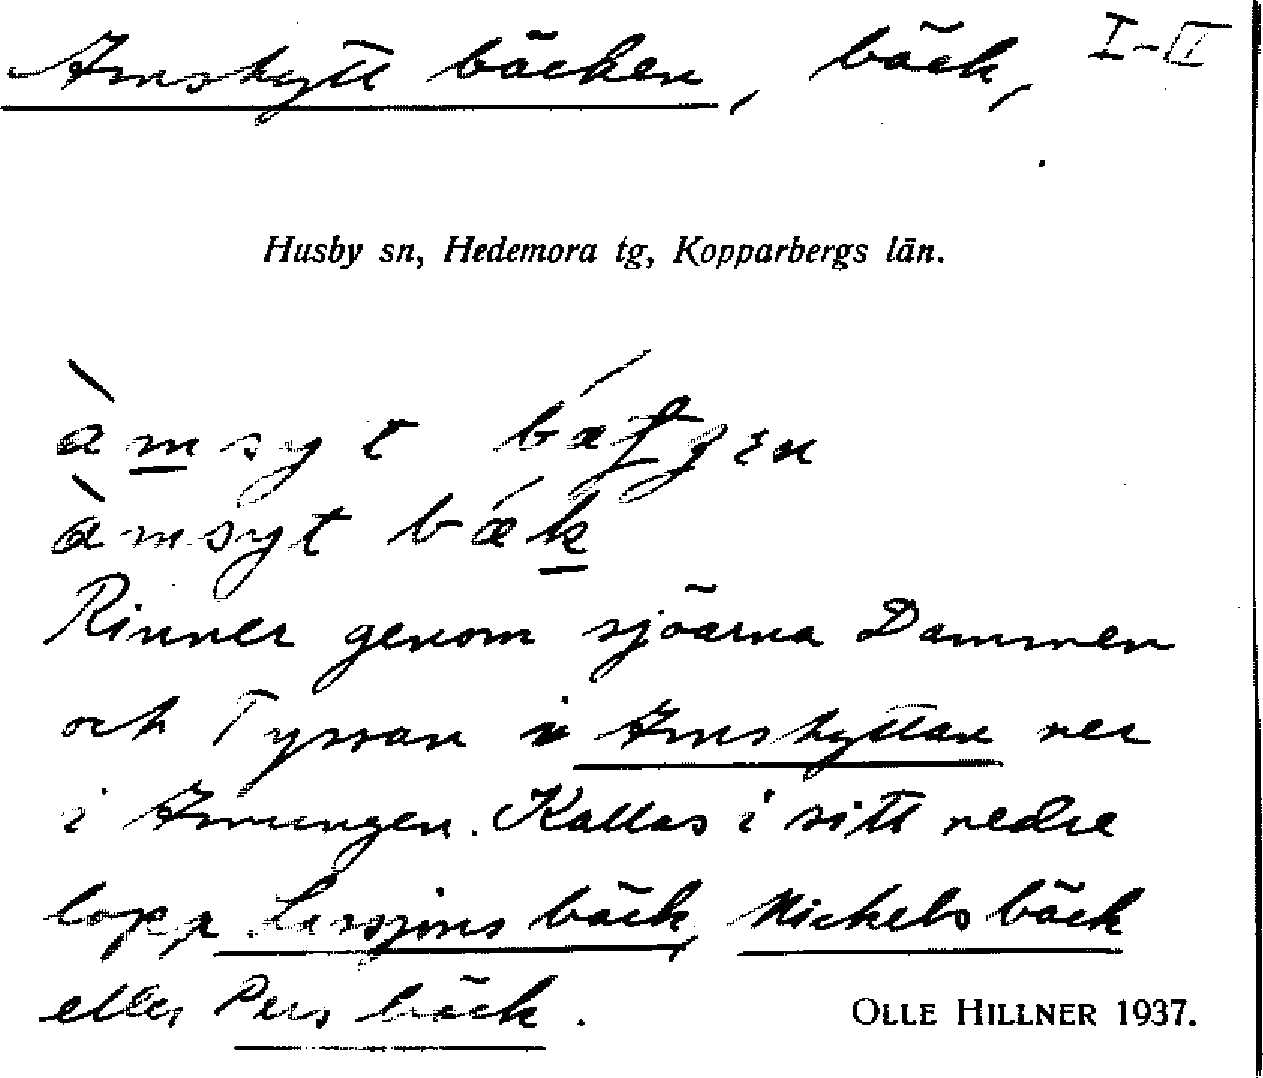 Arnshytt bäcken, bäck, I-II
Husby sn, Hedemora tg, Kopparbergs län.
àmsyt
àmsyt bǽk
Rinner genom sjöarna Dammen
och Tyrran i Arnshyttan ner
i Amungen. Kallas i sitt nedre
lopp Larsjons bäck, Nickels bäck
eller Pers bäck.
OLLE HILLNER 1937.